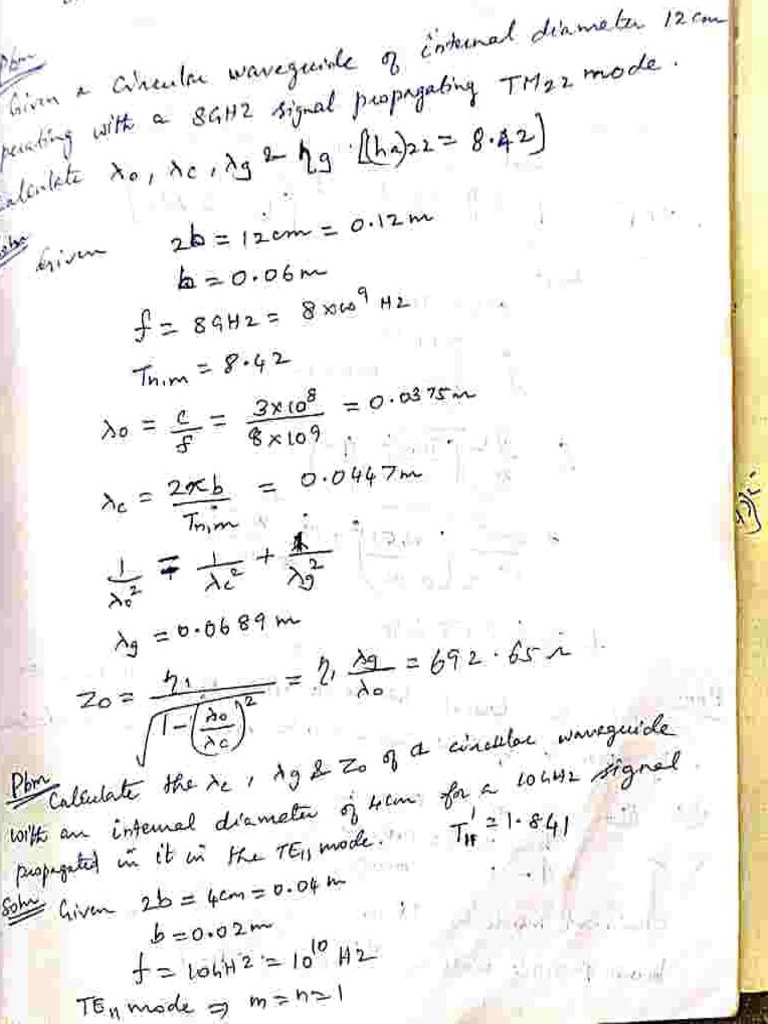 Pbm
Given a Circular waveguide of internal diameter 12cm
perating with a 8GHz signal propagating TM22 mode.
alculate λo, λc, λg & ηg [(ha)22 = 8.42]
Given 2b = 12cm = 0.12m
b = 0.06m
f = 8GHz = 8x10⁹ Hz
Tn,m = 8.42
λo = c/f = 3x10⁸/8x10⁹ = 0.0375m
λc = 2πb/Tn,m = 0.0447m
1/λo² = 1/λc² + 1/λg²
λg = 0.0689m
Zo = η₁/√(1-(λo/λc)²) = η₁ λg/λo = 692.65Ω
Pbm
Calculate the λc, λg & Zo of a circular waveguide
with an internal diameter of 4cm for a 10GHz signal
propagated in it in the TE₁₁ mode. T'₁₁ = 1.841
Soln Given 2b = 4cm = 0.04m
b = 0.02m
f = 10GHz = 10¹⁰ Hz
TE₁₁ mode ⇒ m = n = 1